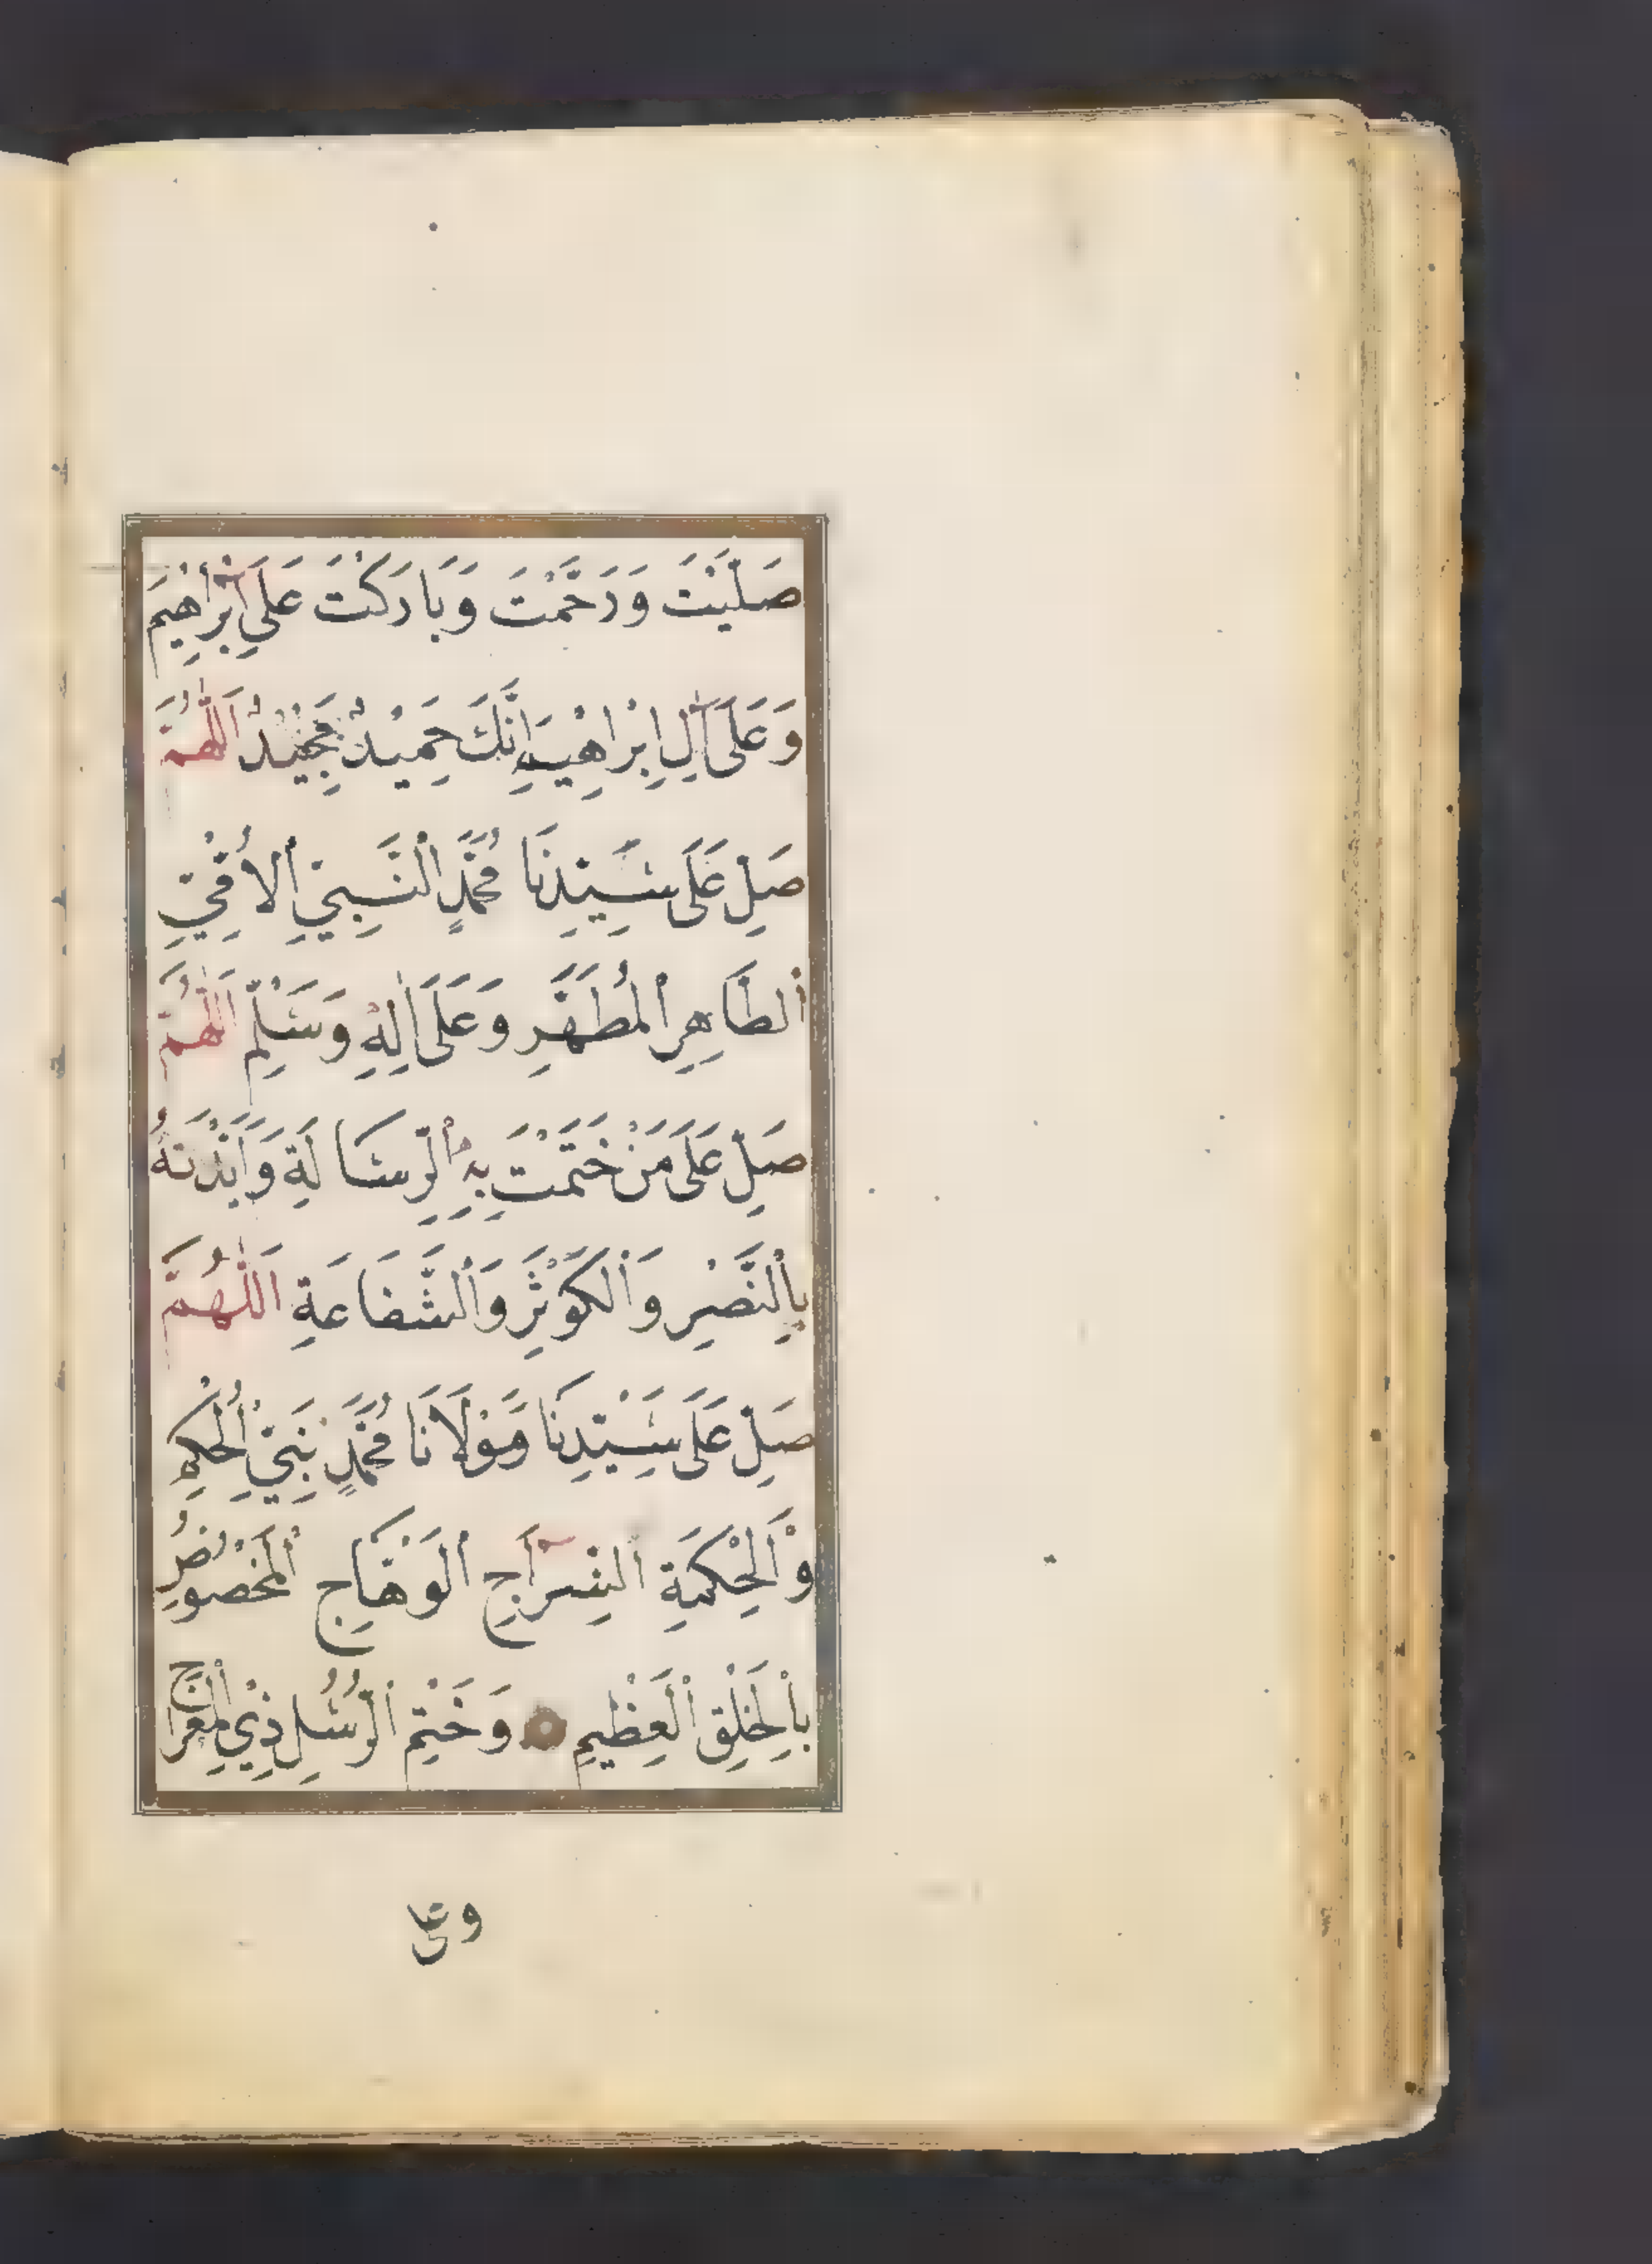 صَلَّيْتَ وَرَحَّمْتَ وَبَارَكْتَ عَلَى إِبْرَاهِيمَ
وَعَلَى آلِ إِبْرَاهِيمَ إِنَّكَ حَمِيْدٌ مَجِيْدٌ اَللّٰهُمَّ
صَلِّ عَلَى سَيِّدِنَا مُحَمَّدٍ اْلنَّبِيِّ اْلأُمِّيِّ
اْلطَّاهِرِ اْلمُطَهَّرِ وَعَلَى اٰلِهِ وَسَلِّمْ اَللّٰهُمَّ
صَلِّ عَلَى مَنْ خَتَمْتَ بِهِ اْلرِّسَالَةِ وَاَيَّدْتَهُ
بِاْلنَّصْرِ وَاْلكَوْثَرِ وَاْلشَّفَاعَةِ اَللّٰهُمَّ
صَلِّ عَلَى سَيِّدِنَا وَمَوْلَانَا مُحَمَّدٍ نَبِيِّ اْلحُكْمِ
وَاْلحِكْمَةِ اْلسِّرَاجِ اْلوَهَّاجِ اْلمَخْصُوْصِ
بِاْلخُلُقِ اْلعَظِيْمِ وَخَتْمِ اْلرُّسُلِ ذِي اْلمِعْرَاجِ
وعلى